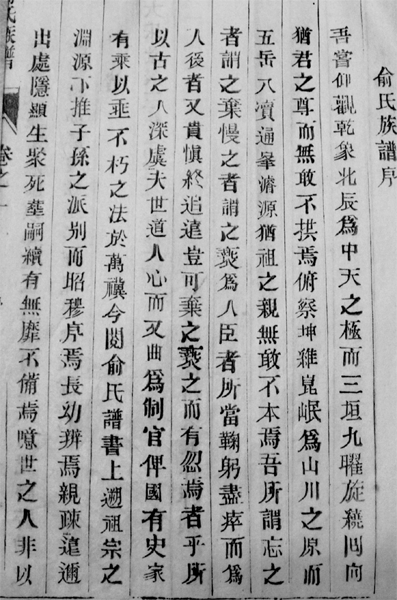 俞氏族譜序
吾嘗仰觀乾象北辰爲中天之極而三垣九曜旋繞囘向
猶君之尊而無敢不拱焉俯察坤維崑岷爲山川之原而
五岳八瀆通暈濬源猶祖之親無敢不本焉吾所謂忘之
者謂之棄慢之者謂之褻爲人臣者所當鞠躬盡瘁而爲
人後者又貴愼終追遠豈可棄之褻之而有忽焉者乎所
以古之人深虞夫世道人心而又曲爲制官俾國有史家
有乘以垂不朽之法於萬禩今閱俞氏譜書上遡祖宗之
淵源下推子孫之派别而昭穆序焉長幼辨焉親疎遠邇
出處隱顯生娶死塟嗣續有無靡不備焉噫世之人非以
氏族譜
卷之一